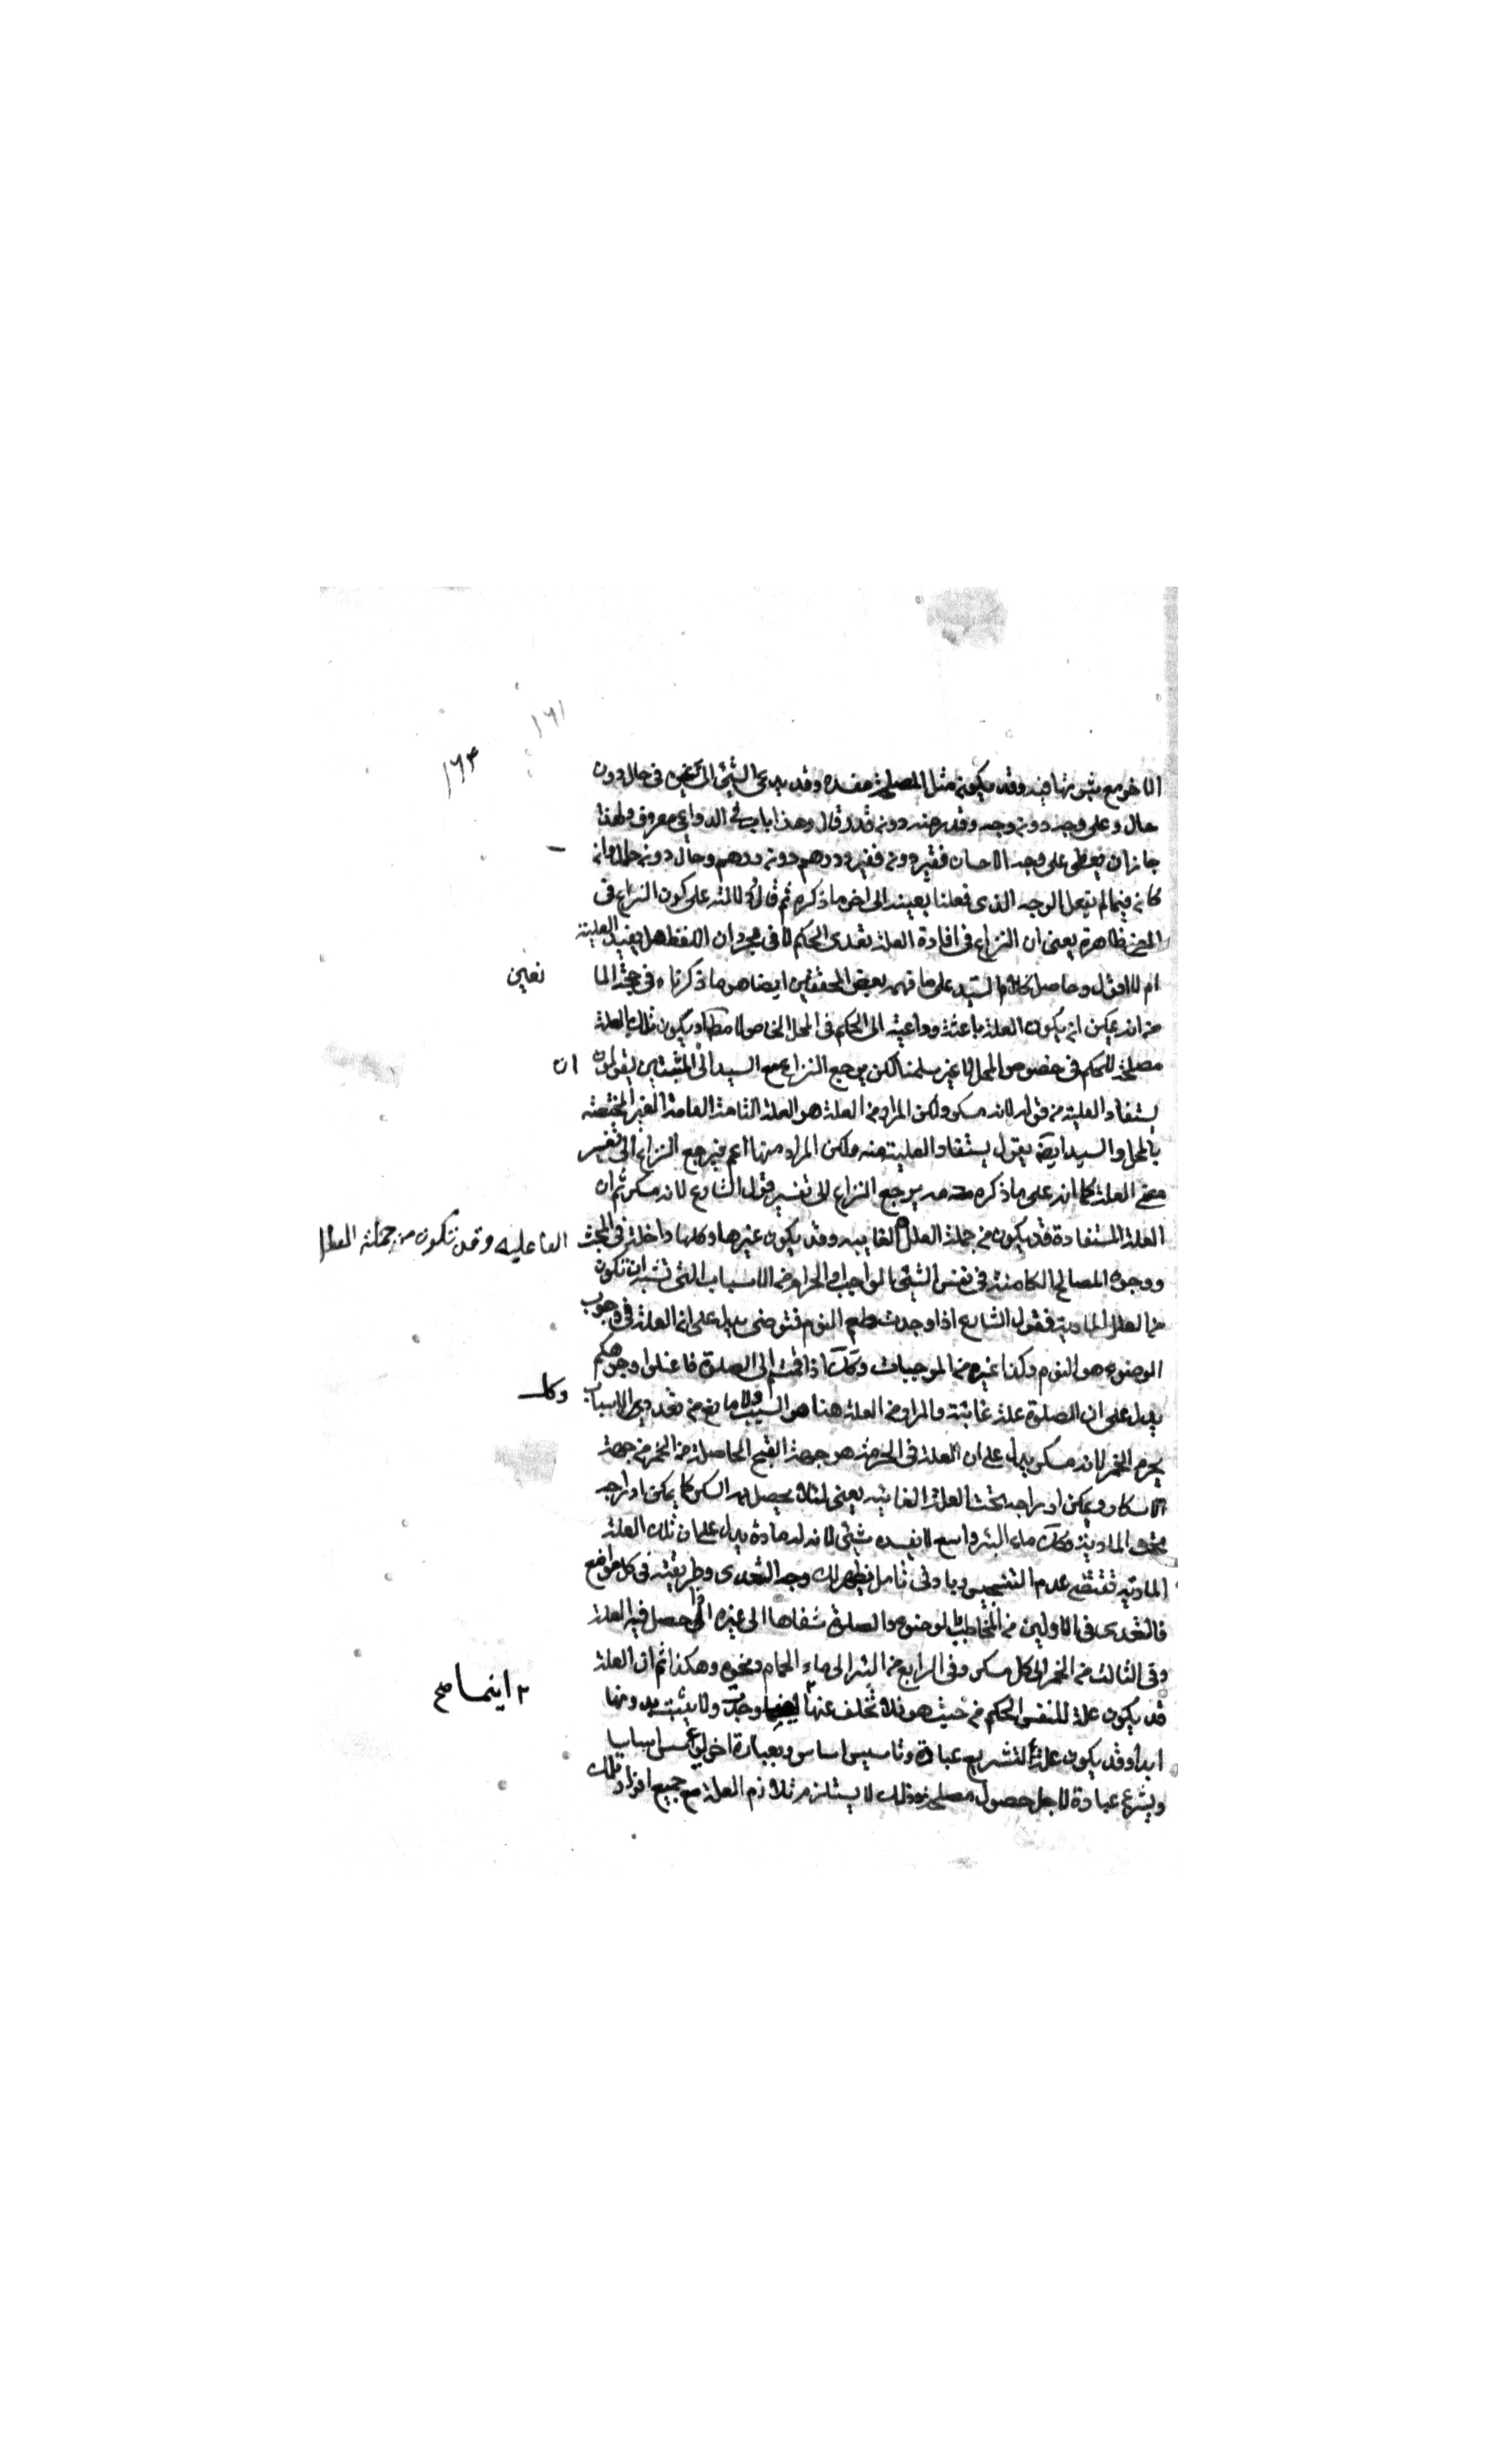 ١٦١
١٦٣
الاخر مع ثبوتها فيه وقد يكون مثل المصلحة مفسدة وقد يدعى الشيئ الى غيره في حال دون
حال وعلى وجه دون وجه وقدر منه دون قدر قال وهذا باب في الدواعي معروف ولهذا
جاز ان يعطى على وجه الاحسان فقير دون فقير ودرهم دون درهم وحال دون حال وان
كان فيما لم يفعل الوجه الذى فعلنا بعينه الى اخر ما ذكره ثم قال دلالته على كون النزاع في
المعنى ظاهرة يعنى ان النزاع في افادة العلة تعدى الحكم لا في مجرد ان اللفظ هل يفيد العلية
ام لا اقول وحاصل كلام السيد على ما فهمه بعض المحققين ايضا هو ما ذكرناه في حجة المانعين
من انه يمكن ان يكون العلة باعثة وداعية الى الحكم في المحل الخاص لا مطلقا ويكون تلك العلة
مصلحة للحكم في خصوص المحل لا غير سلمنا لكن يرجع النزاع مع السيد الى المثبتين يقولون ان
يستفاد العلية من قوله لانه مسكر ولكن المراد من العلة هو العلة التامة العامة الغير المختصة
بالمحل والسيد ايضا يقول يستفاد العلية منه ولكن المراد منها اعم فيرجع النزاع الى تفسير
معنى العلة كما انه على ما ذكره يرجع النزاع الى تفسير قول الشارع لانه مسكر ثم ان
العلة المستفادة قد يكون من جملة العلل الفاعليه وقد تكون من جملة العلل الغاييه وقد يكون غيرها وكلها داخلة في المبحث
ووجوه المصالح الكامنة في نفس الشيئ الواجب او الحرام من الاسباب التى تشبه ان تكون
من العلل المادية فقول الشارع اذا وجدت طعم النوم فتوضى يدل على ان العلة في وجوب
الوضوء هو النوم وكذا غيره من الموجبات وكك اذا قمتم الى الصلوة فاغسلوا وجوهكم
يدل على ان الصلوة علة غائية والمراد من العلة هنا هو السبب ولا مانع من تعدد الاسباب وكك
يحرم الخمر لانه مسكر يدل على ان العلة في الحرمة هو جهة القبح الحاصلة من الخمر من جهة
الاسكار ويمكن ادراجه تحت العلة الغائيه يعنى لئلا يحصل السكر كما يمكن ادراجه
تحت المادية وكك ماء البئر واسع لا يفسده شيئ لانه له مادة يدل على ان تلك العلة
المادية تقتضى عدم التنجيس وبادنى تامل يظهر لك وجه التعدى وطريقته في كل مواضع
فالتعدى في الاولين من المخاطب بالوضوء والصلوة شفاها الى غيره اذا حصل فيه العلة
وفى الثالث من الخمر الى كل مسكر وفى الرابع من البئر الى ماء الحمام ونحوه وهكذا ثم ان العلة
قد يكون علة لنفس الحكم من حيث هو فلا تخلف عنها اينما صح وجدت ولا يثبت بدونها
ابدا وقد يكون علة لتشريع عبادة وتاسيس اساس وبعبارة اخرى يؤسس اساسا
ويشرع عبادة لاجل حصول مصلحة وذلك لا يستلزم تلازم العلة مع جميع افراد تلك